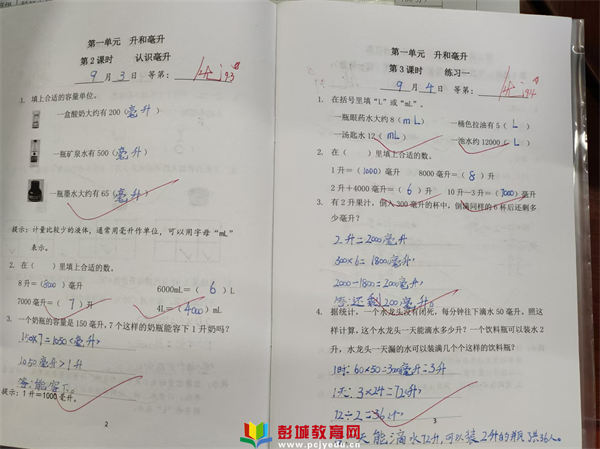 第一单元 升和毫升
第2课时 认识毫升
9月3日 等第：
1. 填上合适的容量单位。
一盒酸奶大约有200（毫升）
一瓶矿泉水有500（毫升）
一瓶墨水大约有65（毫升）
提示：计量比较少的液体，通常用毫升作单位，可以用字母“mL”
表示。
2. 在（ ）里填上合适的数。
8升＝（8000）毫升 6000mL＝（6）L
7000毫升＝（7）升 4L＝（4000）mL
3. 一个奶瓶的容量是150毫升，7个这样的奶瓶能容下1升奶吗？
150×7=1050（毫升）
1050毫升>1升
答：能容下。
提示：1升=1000毫升。
2
第一单元 升和毫升
第3课时 练习一
9月4日 等第：
1. 在括号里填“L”或“mL”。
一瓶眼药水大约8（mL） 一桶色拉油有5（L）
一汤匙水12（mL） 一池水约12000（L）
2. 在（ ）里填上合适的数。
1升＝（1000）毫升 8000毫升＝（8）升
2升+4000毫升＝（6）升 10升－3升＝（7000）毫升
3. 有2升果汁，倒入300毫升的杯中，倒满同样的6杯后还剩多
少毫升？
2升=2000毫升
300×6=1800毫升
2000-1800=200毫升
答：还剩200毫升。
4. 据统计，一个水龙头没有闭死，每分钟往下滴水50毫升。照这
样计算，这个水龙头一天能滴水多少升？一个饮料瓶可以装水2
升，水龙头一天漏的水可以装满几个这样的饮料瓶？
1时：60×50=3000毫升=3升
1天：3×24=72升
72÷2=36
天能滴水72升，可以装2升的瓶
3
彭城教育网
www.pcjyedu.cn